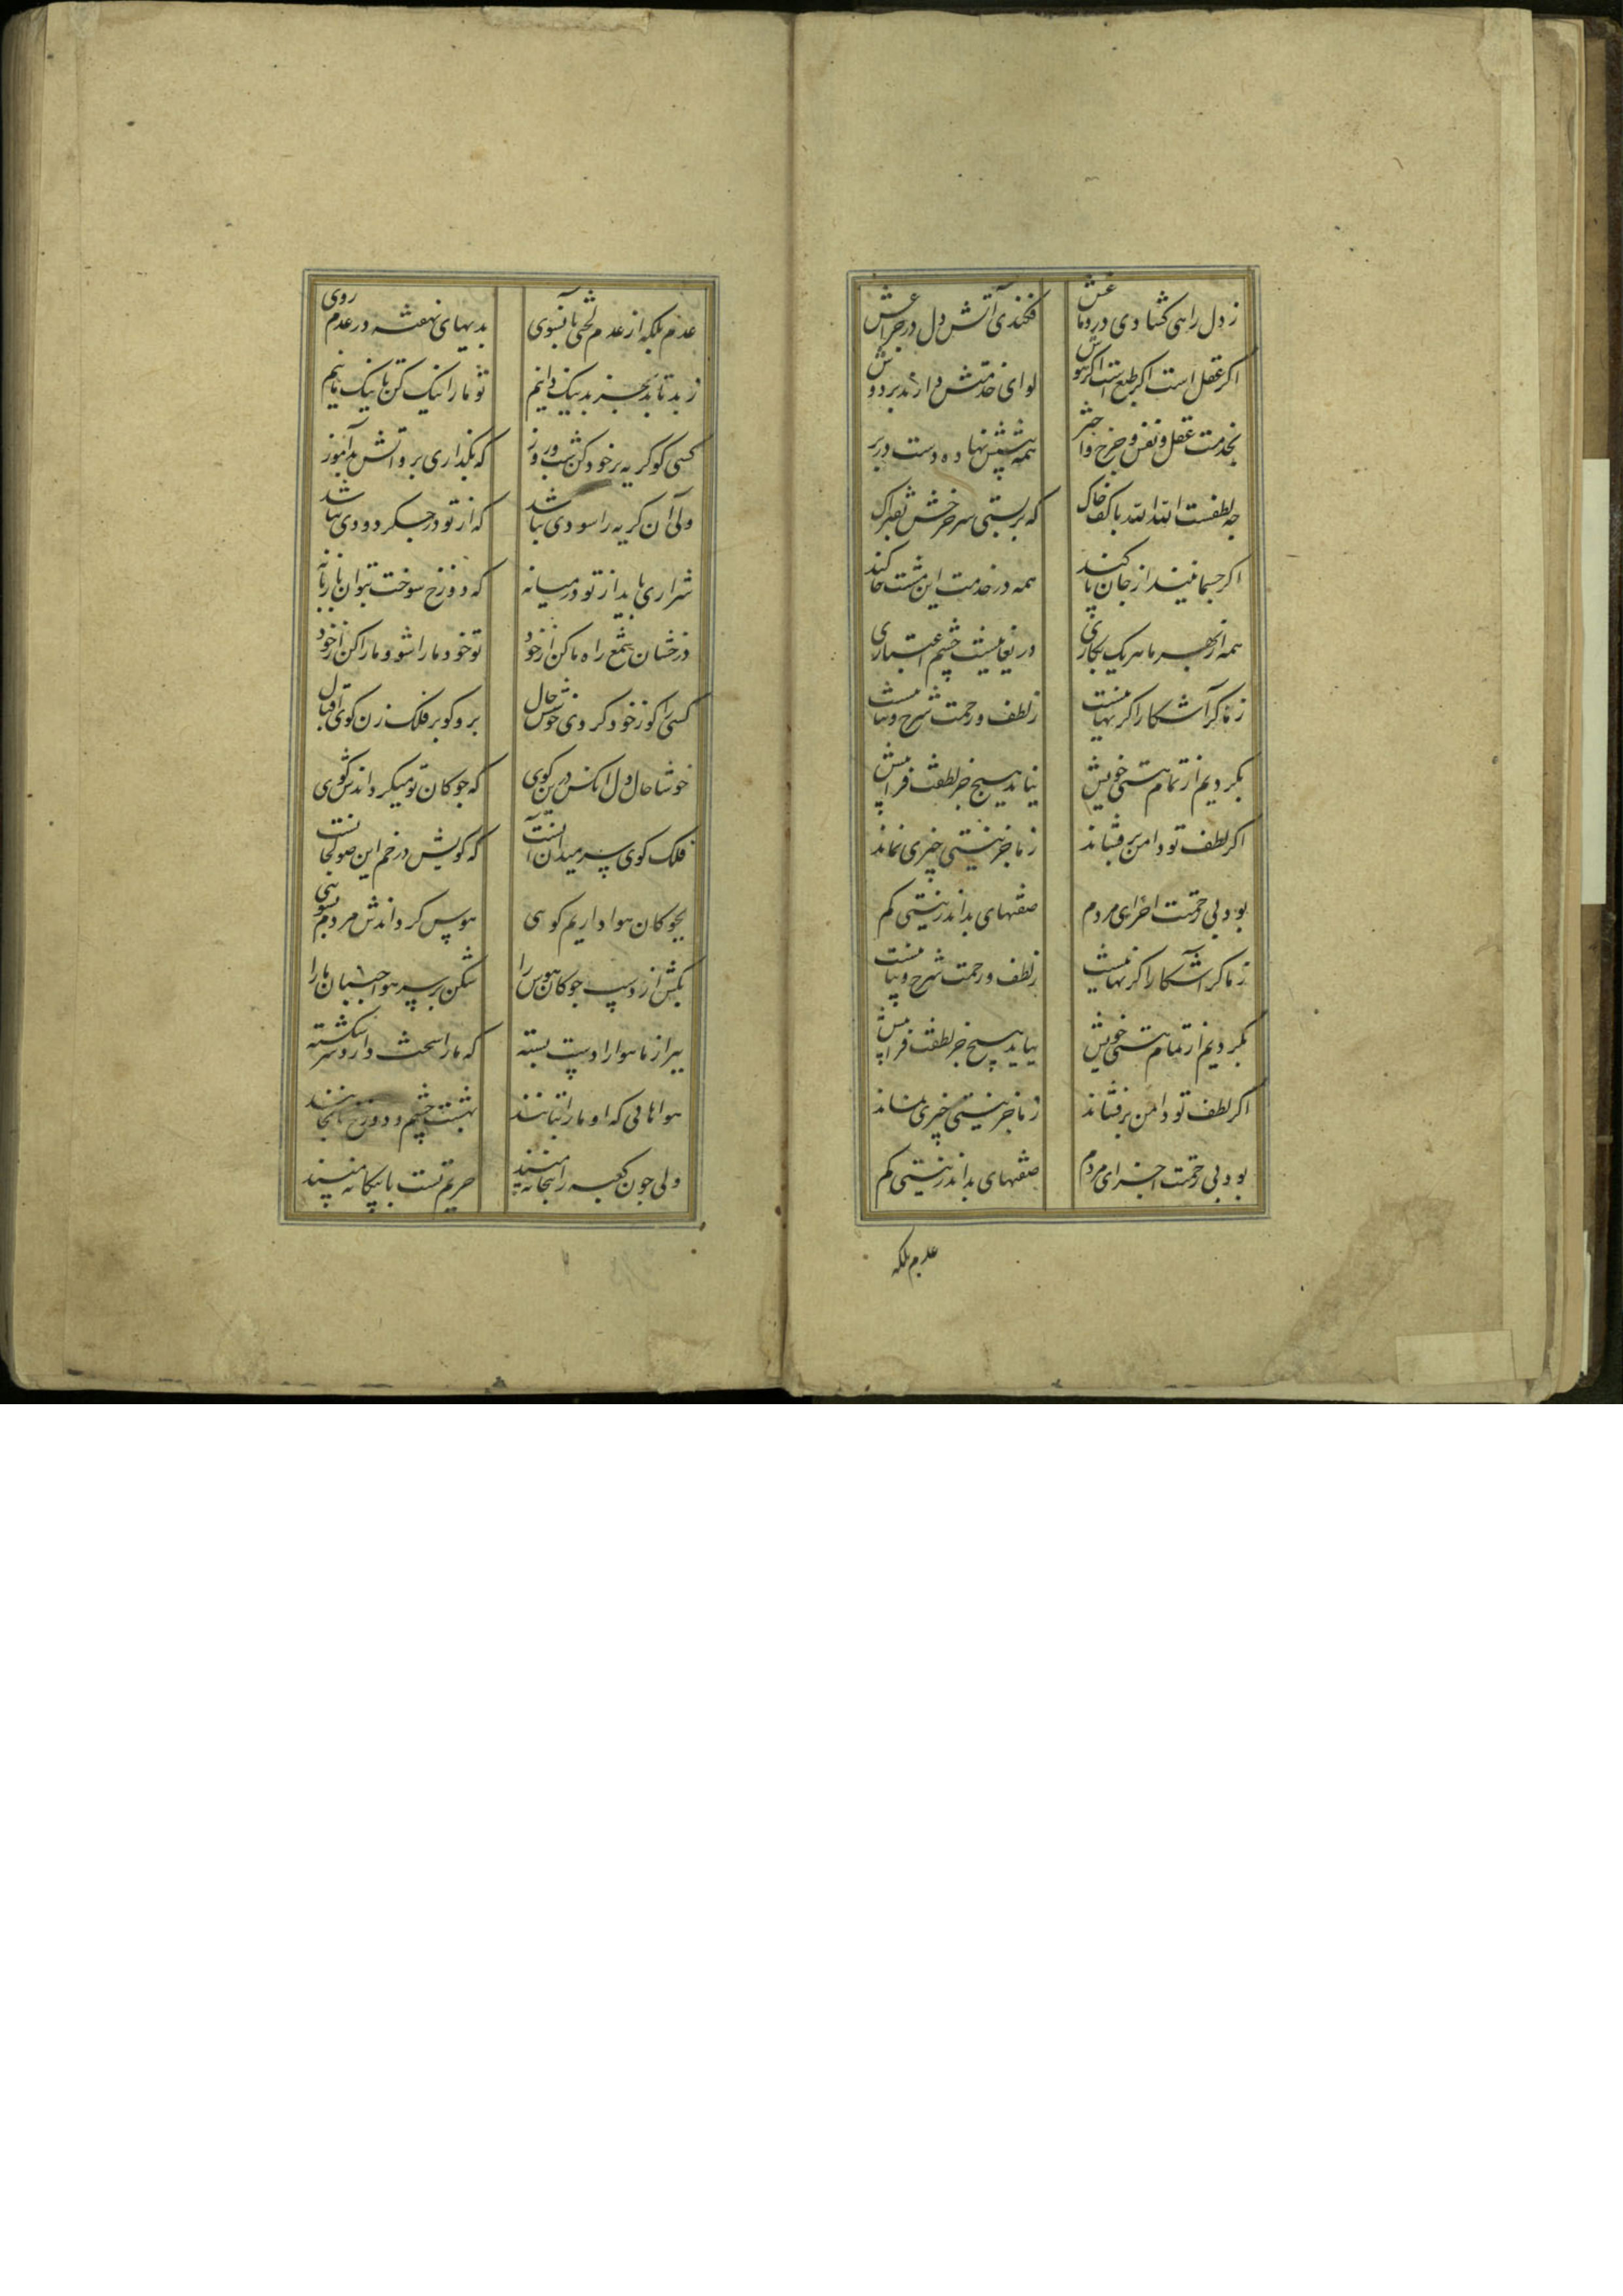 ز دل راهی کشادی در دماغش فکندی آتش دل در چراغش
اکر عقل است اکر طبع است اکر هوش لوای خدمتش دارند بر دوش
بخدمت عقل و نفس و چرخ و اختر همه پیشش نهاده دست در بر
چه لطفست الله الله با کف خاک که بربستی سر چرخش بفتراک
اکر جسمانیند از جان پاکند همه در خدمت این مشت خاکند
همه از بهر ما هر یک بکاری دریغا نیست چشم اعتباری
ز ما کر آشکارا کر نهانیست ز لطف و رحمتت شرح و بیانیست
بکردیم از تمام هستی خویش نیاید هیچ جز لطفت فراپیش
اکر لطف تو دامن برفشاند ز ما جز نیستی چیزی نماند
بود بی رحمتت اجزای مردم صفتهای بد اندر نیستی کم
ز ما کر آشکارا کر نهانیست ز لطف و رحمتت شرح و بیانیست
بکردیم از تمام هستی خویش نیاید هیچ جز لطفت فراپیش
اکر لطف تو دامن برفشاند ز ما جز نیستی چیزی نماند
بود بی رحمتت اجزای مردم صفتهای بد اندر نیستی کم
عدم بلکه
عدم بلکه از عدم لختی با نسوی بدیهای نهفته در عدم روی
ز بد تا بد بجز بد نیک دانیم تو ما را نیک کن تا نیک مانیم
کسی کو کریه بر خود کن شب و روز که بکذاری برو آتش بیاموز
ولی آن کریه را سودی نباشد که از تو در جکر دودی نباشد
شراری باید از تو در میانه که دوزخ سوخت بتوان با زبانه
درخشان شمع راه ما کن از خود تو خود ما را شو و ما را کن از خود
کسی کو ز خود کردی خوش حال برو کو بر فلک زن کوی اقبال
خوشا حال دل آنکس درین کوی که چوکان تو میکرداندش کوی
فلک کوی سر میدان آنست که کویش در خم این صولجانست
بچوکان هوا داریم کوهی هوس کرداندش هر دم بسوهی
بکش از دست چوکان هوس را شکن بر سر هوا جنبان ما را
ببر از ما هوا را دست بسته که ما را سخت دارد سر شکسته
هواهایی که او ما را بتانند بهشت چشم و دوزخ را بجانند
ولی چون کعبه را بتخانه مپسند حریم تست با بیکانه مپسند